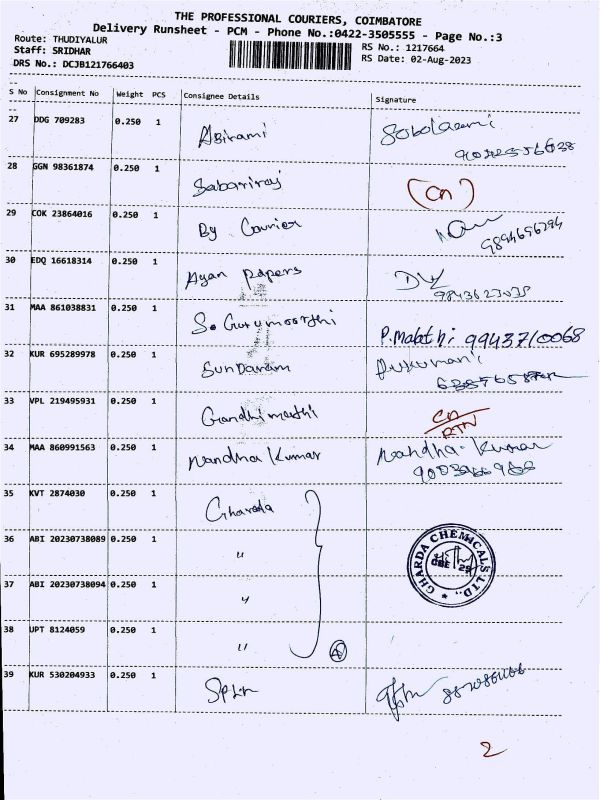 THE PROFESSIONAL COURIERS, COIMBATORE
Delivery Runsheet - PCM - Phone No.:0422-3505555 - Page No.:3
Route: THUDIYALUR
Staff: SRIDHAR
DRS No.: DCJB121766403
RS No.: 1217664
RS Date: 02-Aug-2023
S No Consignment No Weight PCS Consignee Details Signature
27 DDG 709283 0.250 1 Abirami
28 GGN 98361874 0.250 1 Sabariraj (CN)
29 COK 23864016 0.250 1 By Courier 9894696294
30 EDQ 16618314 0.250 1 Ayan Papers
31 MAA 861038831 0.250 1 S. Gurumoorthi P. Malathi 9943710068
32 KUR 695289978 0.250 1 SunDaram
33 VPL 219495931 0.250 1 Gandhimathi CN/RTN
34 MAA 860991563 0.250 1 Nandha Kumar Nandha. Kumar
35 KVT 2874030 0.250 1 Gharda
36 ABI 20230738089 0.250 1 "
GHARDA CHEMICALS LTD.,
CBE 29
37 ABI 20230738094 0.250 1 "
38 UPT 8124059 0.250 1 "
4
39 KUR 530204933 0.250 1
2